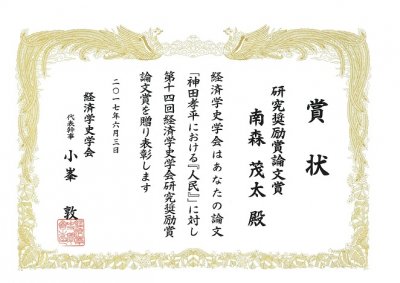 賞状
研究奨励賞論文賞
南森 茂太 殿
経済学史学会はあなたの論文
「神田孝平における『人民』」に対し
第十四回経済学史学会研究奨励賞
論文賞を贈り表彰します
二〇一七年六月三日
経済学史学会
代表幹事 小峯 敦